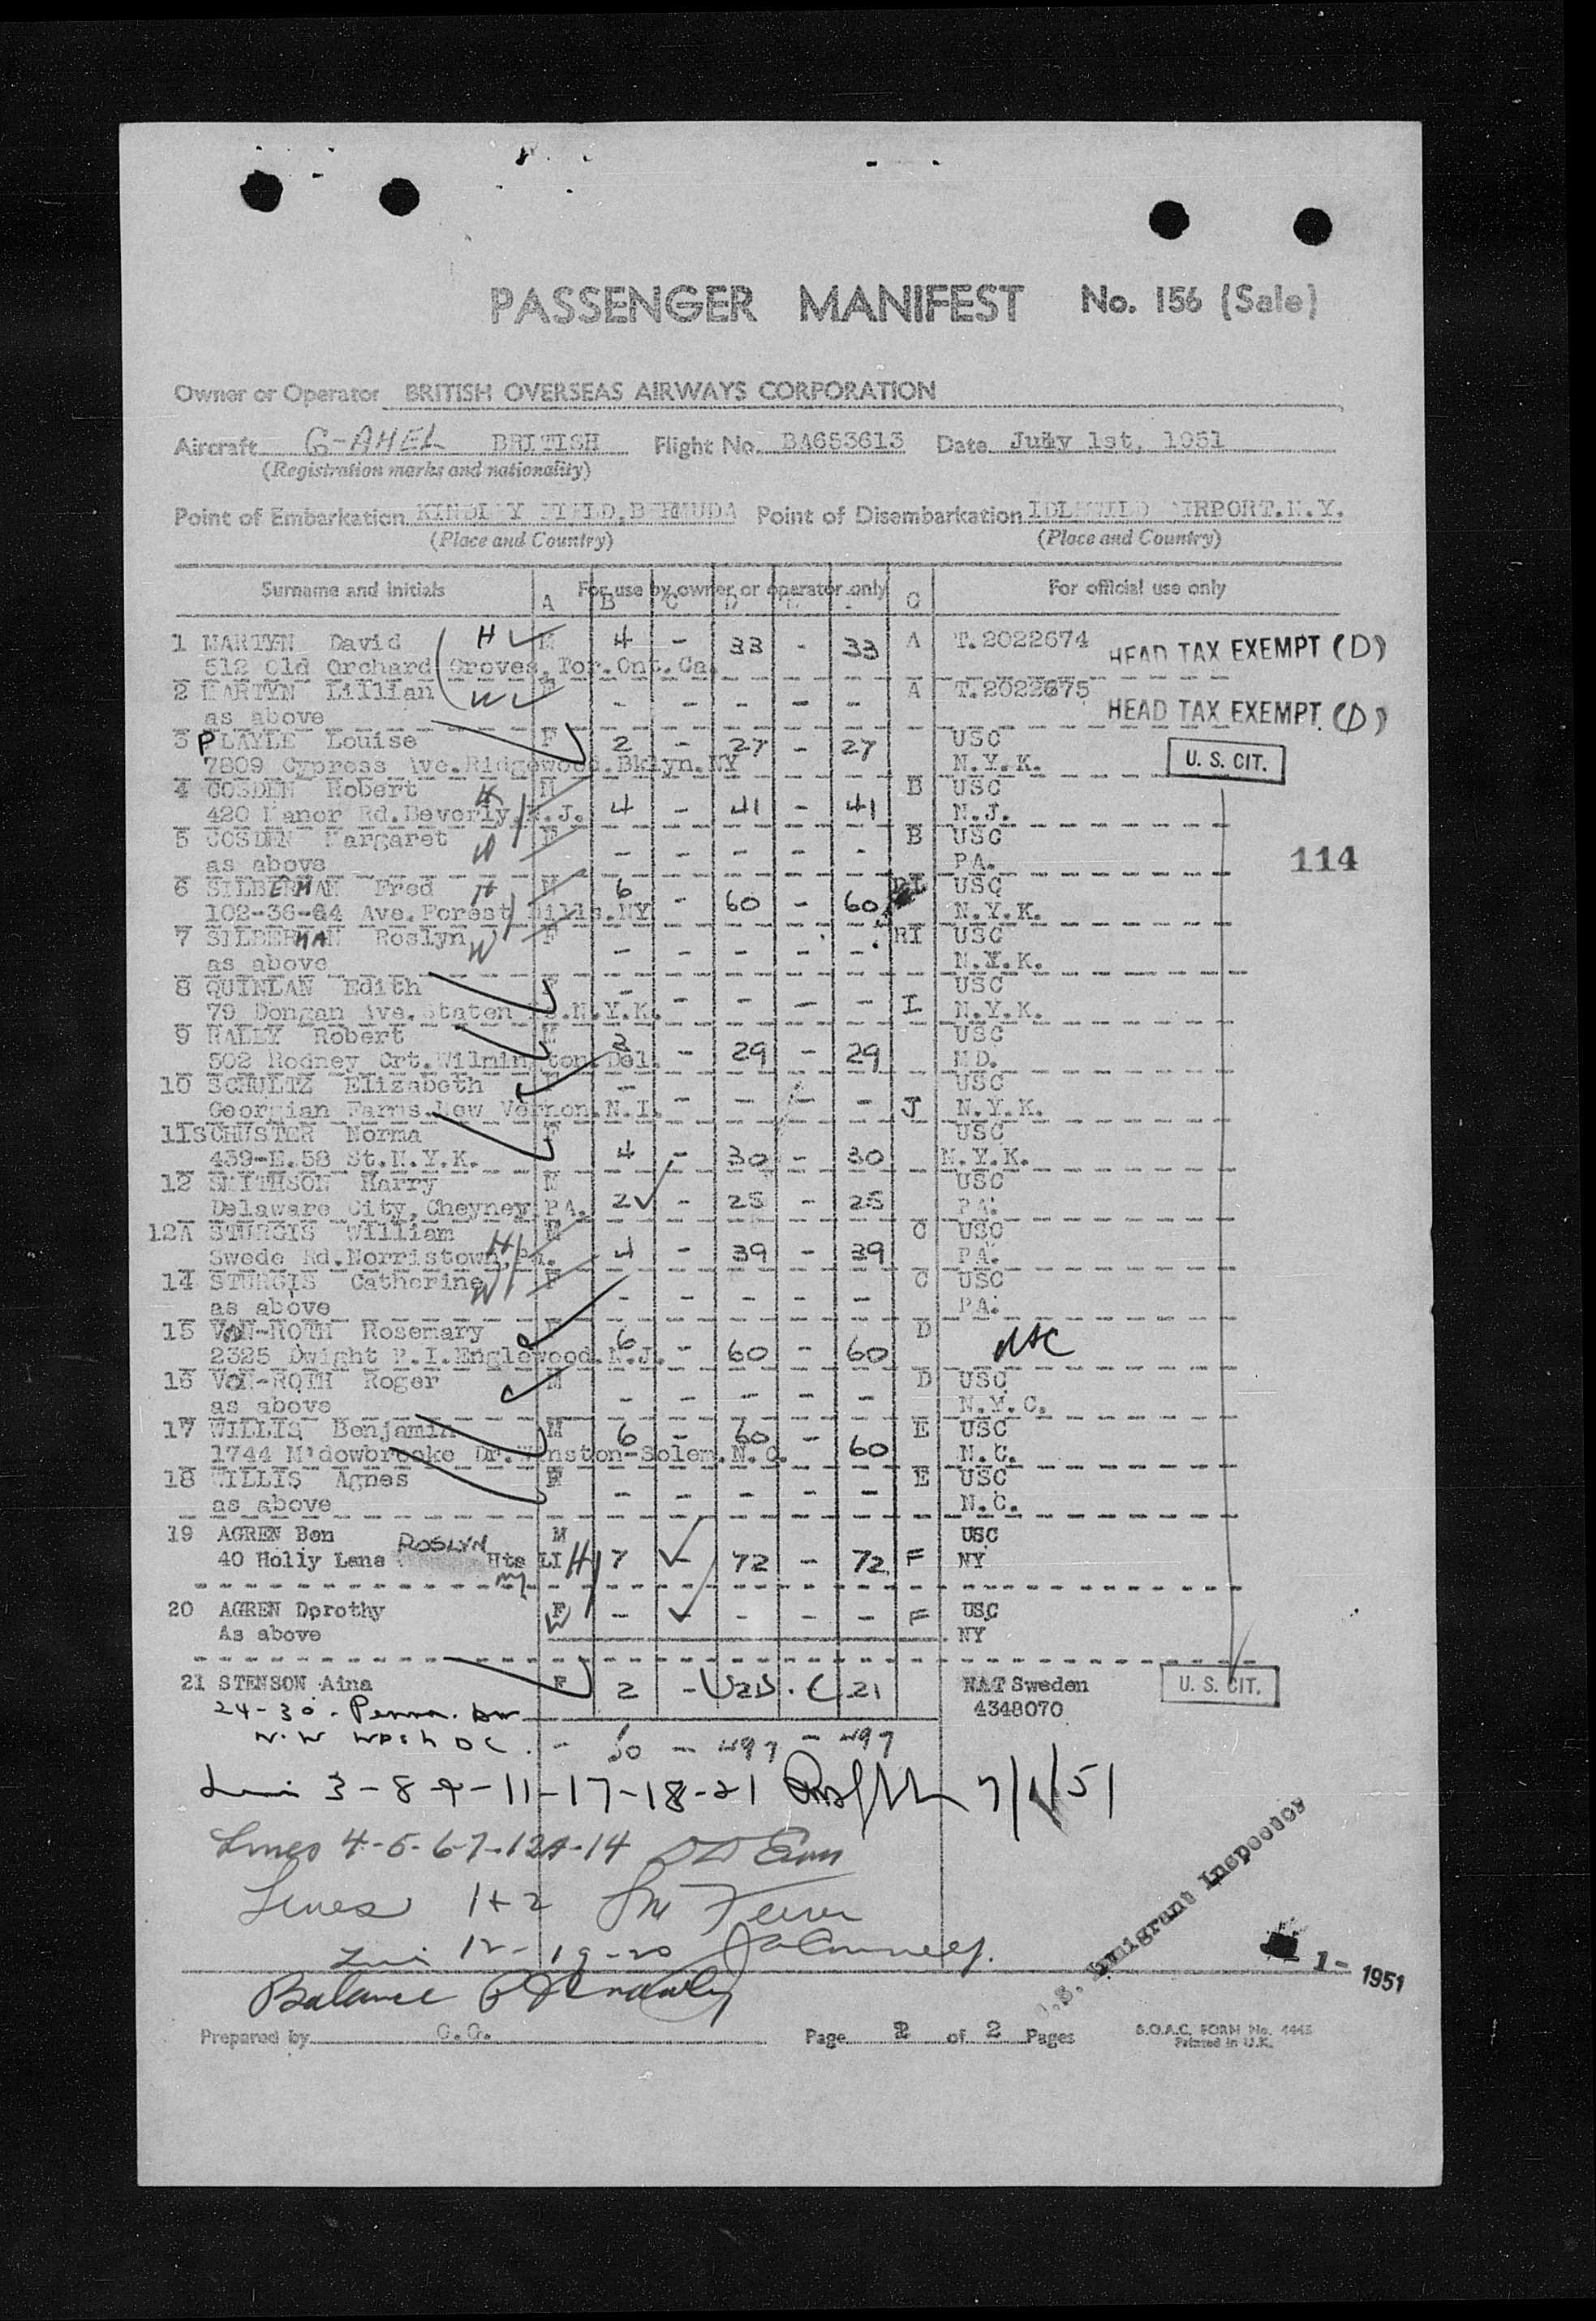 PASSENGER MANIFEST No. 156 (Sale)
Owner or Operator BRITISH OVERSEAS AIRWAYS CORPORATION
Aircraft G-AHEL BRITISH Flight No. BA653613 Date July 1st, 1951
(Registration marks and nationality)
Point of Embarkation KINDLEY FIELD.BERMUDA Point of Disembarkation IDLEWILD AIRPORT.N.Y.
(Place and Country) (Place and Country)
Surname and Initials For use by owner or operator only For official use only
A B C D G
1 MARTYN David H M 4 - 33 - 33 A T.2022674 HEAD TAX EXEMPT (D)
512 Old Orchard Groves.Tor.Ont.Ca.
2 MARTYN Lillian W F - - - - - A T.2022675
as above HEAD TAX EXEMPT (D)
3 PLAYLE Louise F 2 - 27 - 27 USC
7809 Cypress Ave.Ridgewood.Bklyn.NY N.Y.K. U. S. CIT.
4 COSDEN Robert H M B USC
420 Manor Rd.Beverly.N.J. 4 - 41 - 41 N.J.
5 COSDEN Margaret W F - - - - - B USC
as above PA. 114
6 SILBERMAN Fred H M 6 - 60 - 60 RI USC
102-36-64 Ave.Forest Hills.NY N.Y.K.
7 SILBERMAN Roslyn W F - - - - - RI USC
as above N.Y.K.
8 QUINLAN Edith F - - - - - I USC
79 Dongan Ave.Staten Is.N.Y.K. N.Y.K.
9 RALLY Robert M 3 - 29 - 29 USC
502 Rodney Crt.Wilmington.Del. MD.
10 SCHULTZ Elizabeth F - - - - - J USC
Georgian Farms.New Vernon.N.I. N.Y.K.
11 SCHUSTER Norma F 4 - 30 - 30 USC
439-E.58 St.N.Y.K. N.Y.K.
12 SMITHSON Harry M 2 - 25 - 25 USC
Delaware City, Cheyney.PA. PA.
12A STURGIS William H M C USC
Swede Rd.Norristown,Pa. 4 - 39 - 39 PA.
14 STURGIS Catherine W F - - - - - C USC
as above PA.
15 VON-ROTH Rosemary F 6 - 60 - 60 D
2325 Dwight P.I.Englewood.N.J.
16 VON-ROTH Roger M - - - - - D USC
as above N.Y.C.
17 WILLIS Benjamin M 6 - 60 - 60 E USC
1744 M'dowbrooke Dr.Winston-Solem.N.C. N.C.
18 WILLIS Agnes F - - - - - E USC
as above N.C.
19 AGREN Ben M USC
40 Holly Lane ROSLYN Hts LI NY H 7 - 72 - 72 F NY
20 AGREN Dorothy F W - - - - - F USC
As above NY
21 STENSON Aina F 2 - 21 21 NAT Sweden U. S. CIT.
24-30 Penna. 4348070
N.W Wash DC. - 50 - 497 - 497
3-8-9-11-17-18-21 7/1/51
Lines 4-5-6-7-12A-14
Lines 1+2
12-19-20
Balance
U.S. Immigrant Inspector
1- 1951
Prepared by C.G. Page 2 of 2 Pages B.O.A.C. FORM No. 4443
Printed in U.K.